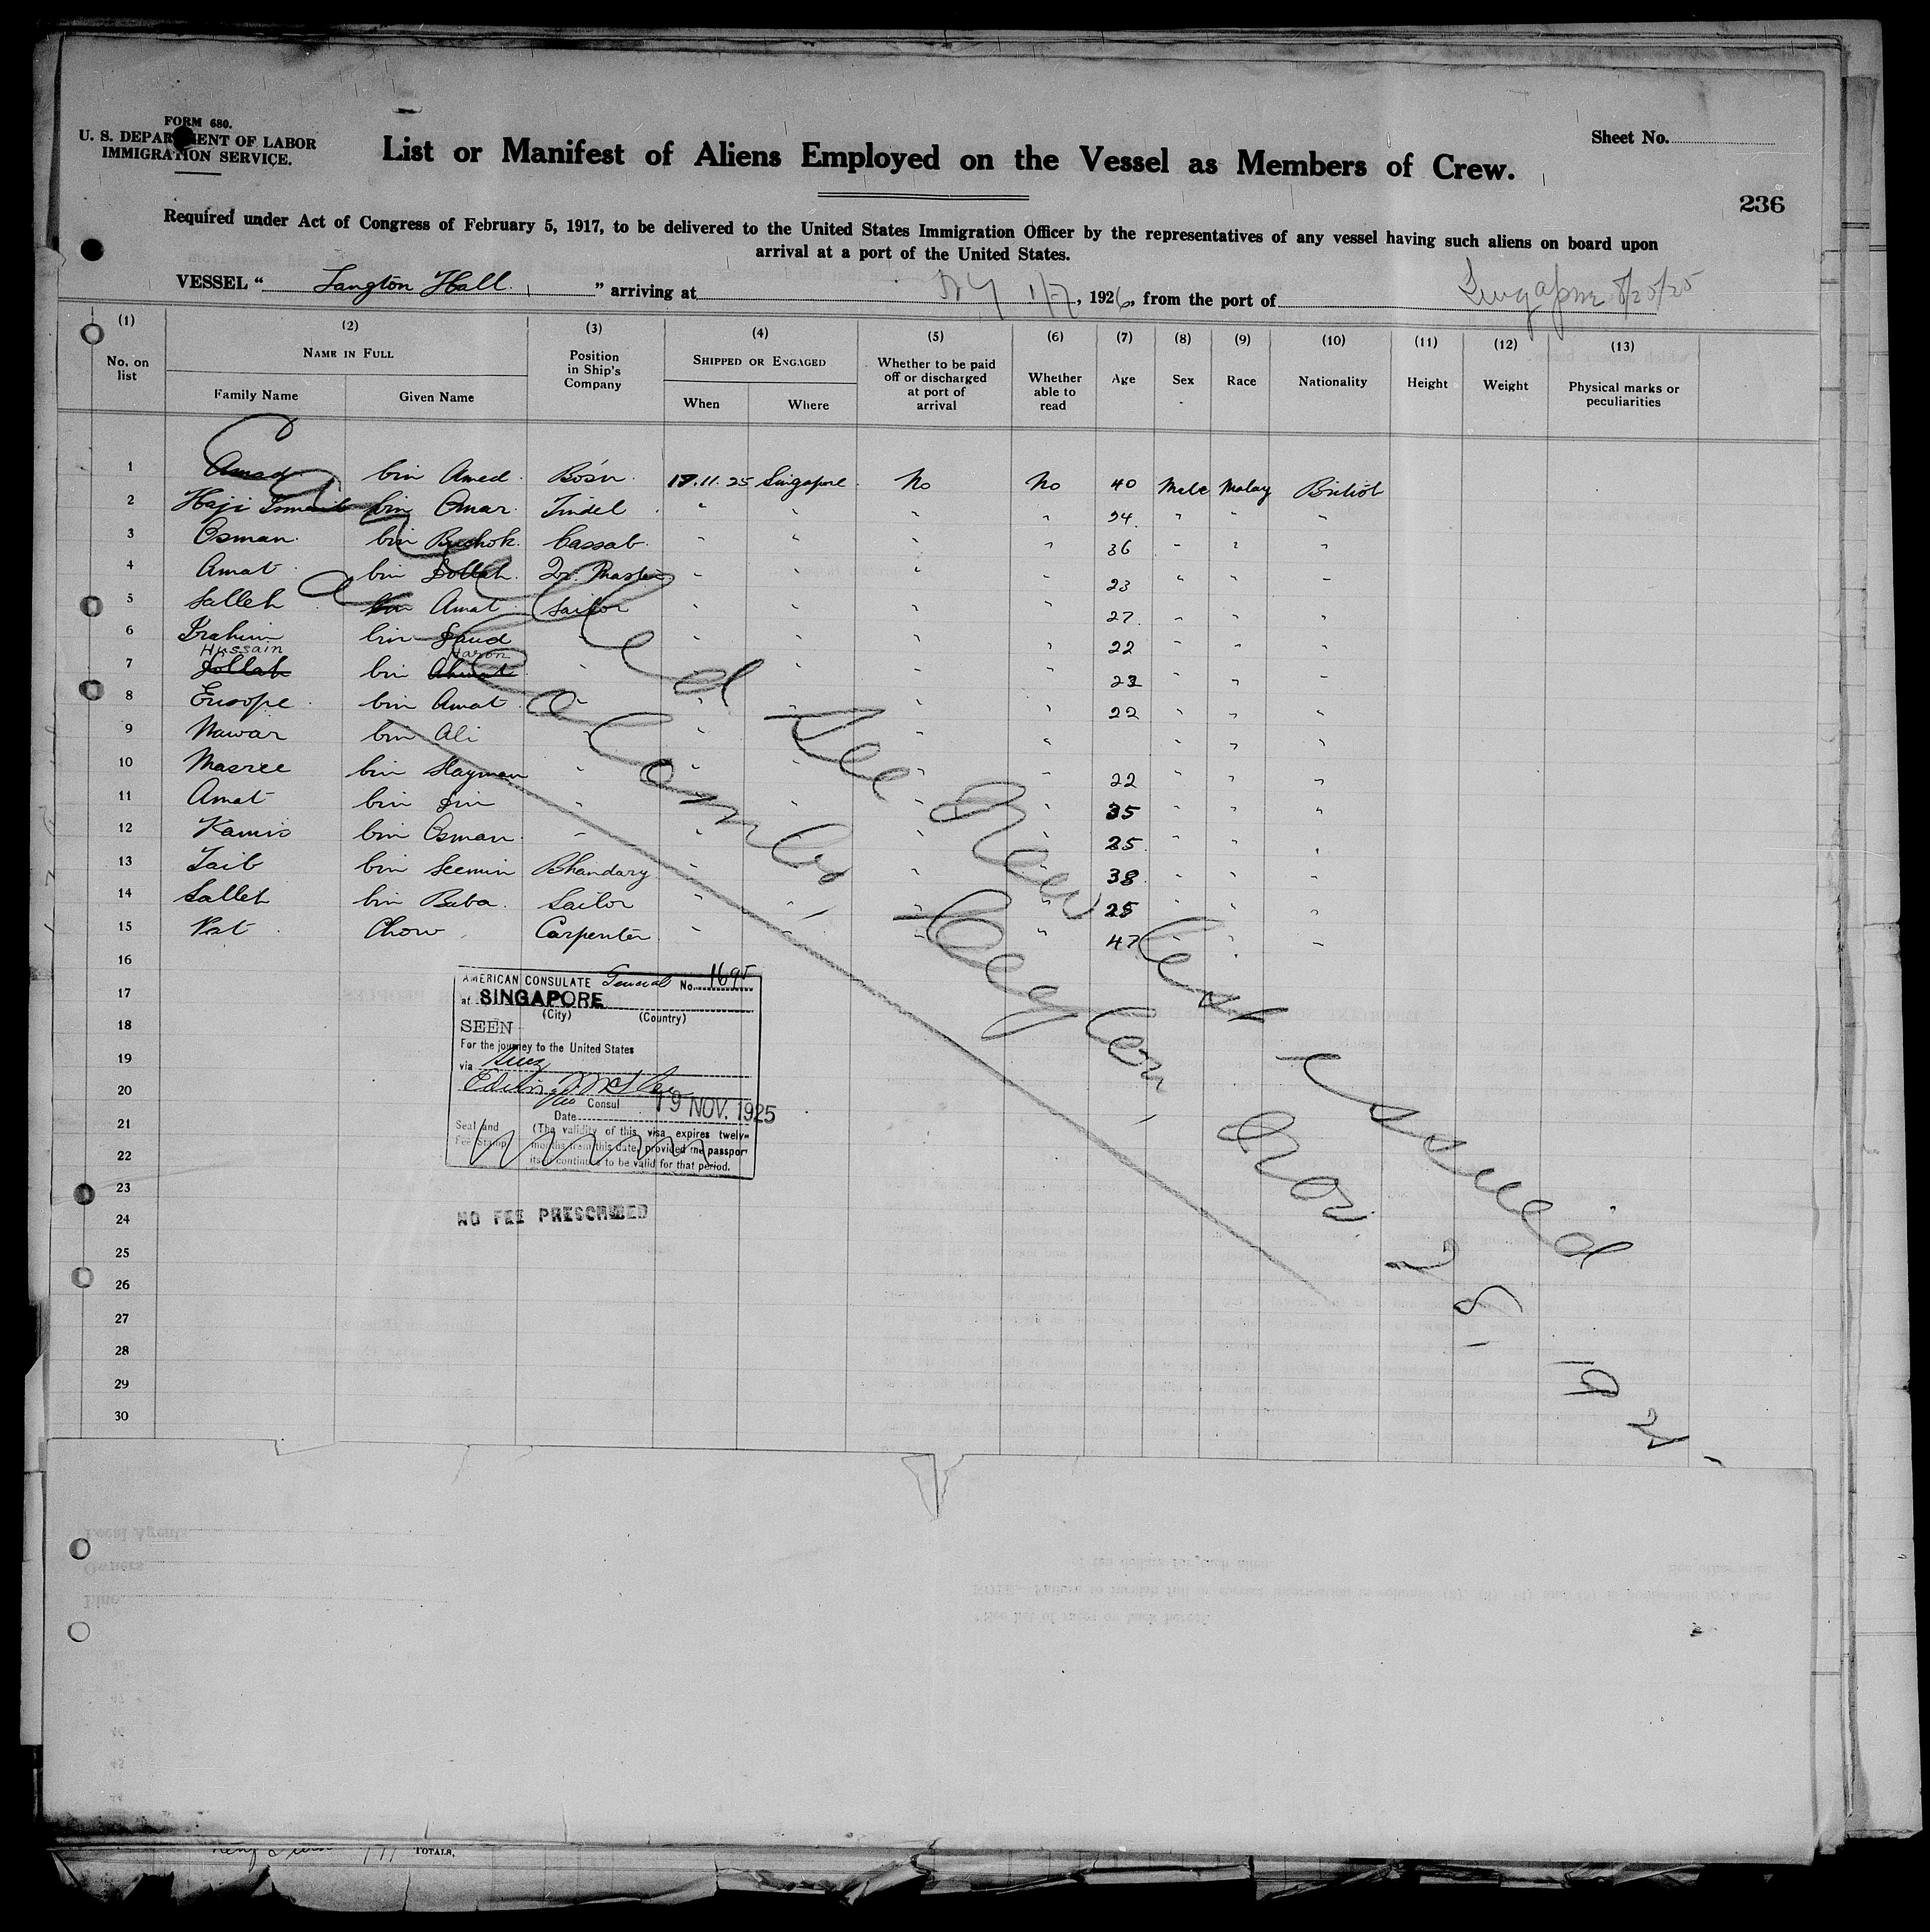 FORM 680.
U. S. DEPARTMENT OF LABOR
IMMIGRATION SERVICE.
List or Manifest of Aliens Employed on the Vessel as Members of Crew.
Sheet No.
236
Required under Act of Congress of February 5, 1917, to be delivered to the United States Immigration Officer by the representatives of any vessel having such aliens on board upon
arrival at a port of the United States.
VESSEL " Langton Hall " arriving at NY 1/7, 1926, from the port of Singapore
(1) (2) (3) (4) (5) (6) (7) (8) (9) (10) (11) (12) (13)
No. on list
NAME IN FULL
Family Name Given Name
Position in Ship's Company
SHIPPED OR ENGAGED
When Where
Whether to be paid off or discharged at port of arrival
Whether able to read
Age Sex Race Nationality Height Weight
Physical marks or peculiarities
1 Amad bin Amed Bosn 17.11.25 Singapore No No 40 Male Malay British
2 Haji Ismail bin Omar Tindel " " " " 24 " " "
3 Osman bin Cassab " " " " 36 " " "
4 Amat bin Dollah Qr. Master " " " " 23 " " "
5 Salleh bin Amat Sailor " " " " 27 " " "
6 Brahim bin Daud " " " " 22 " " "
Hussain Haron
7 Dollah bin Ahmat " " " " 23 " " "
8 Eusope bin Amat " " " " 22 " " "
9 Nawar bin Ali " " " " " " "
10 Masree bin Slayman " " " " 22 " " "
11 Amat bin Din " " " " 35 " " "
12 Kamis bin Osman " " " " 25 " " "
13 Taib bin Seemin Bhandary " " " 38 " " "
14 Salleh bin Baba Sailor " " " " 25 " " "
15 Pat Chow Carpenter " " " " 47 " " "
16
17
18
19
20
21
22
23
24
25
26
27
28
29
30
Cancelled See New List issued
Colombo Ceylon Nov 28 - 1925
AMERICAN CONSULATE General No. 1695
at SINGAPORE
(City) (Country)
SEEN
For the journey to the United States
via Suez
Consul
Date 19 NOV. 1925
Seal and
Fee Stamp
(The validity of this visa expires twelve
months from this date, provided the passport
itself continues to be valid for that period.
NO FEE PRESCRIBED
TOTALS,